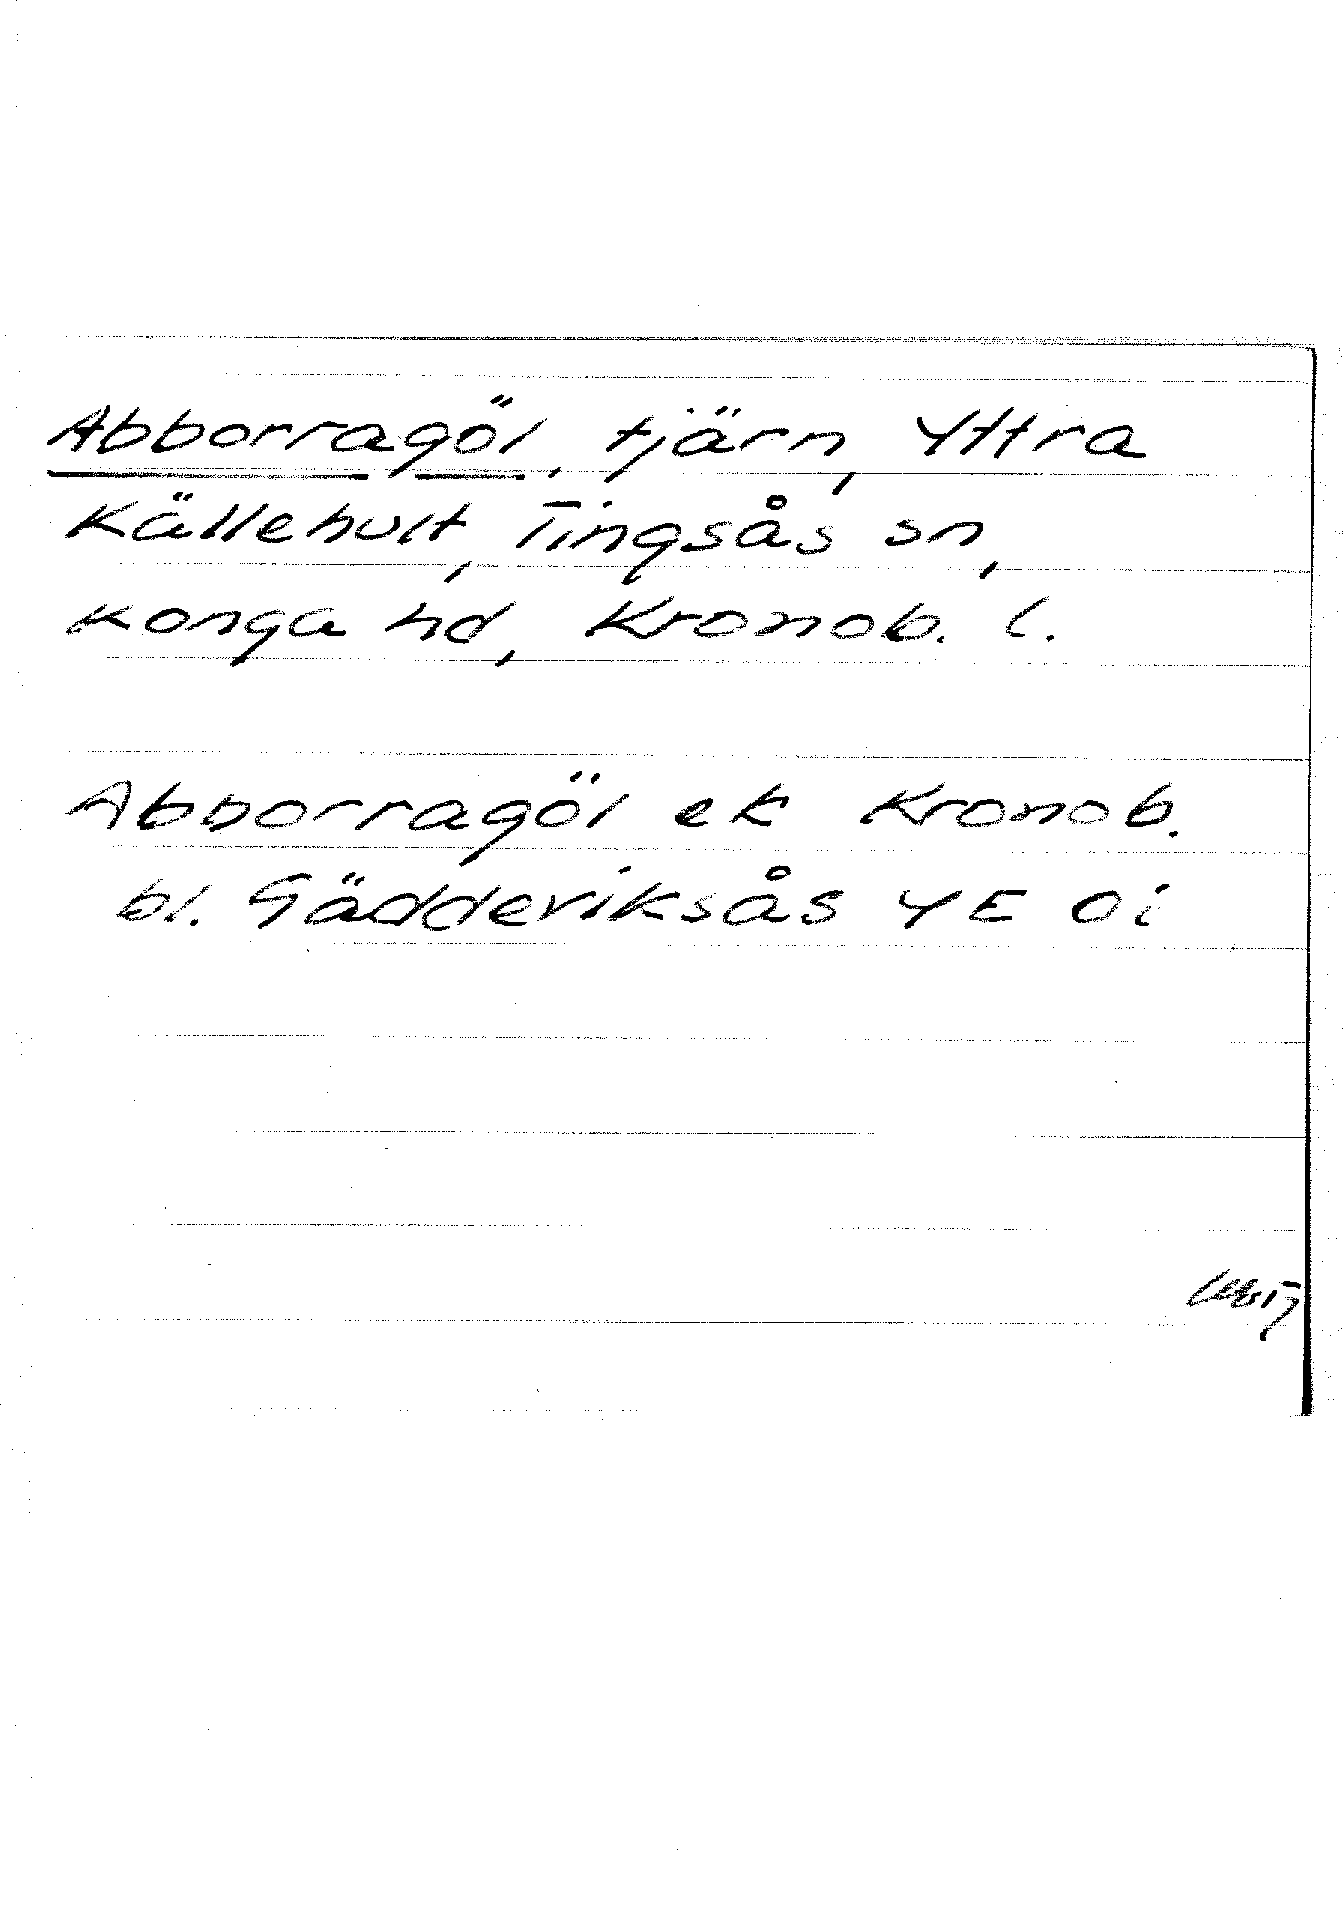 Abborragöl, tjärn, Yttra
Källehult, Tingsås sn,
Konga hd, Kronob. l.
Abborragöl ek Kronob.
bl. Gädderiksås YE Öi